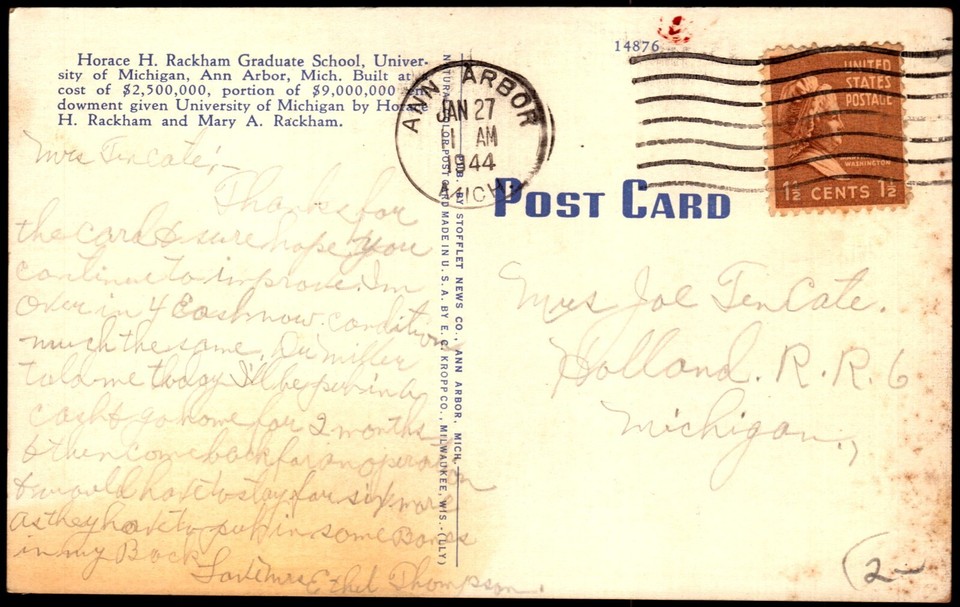 14876
Horace H. Rackham Graduate School, Univer-
sity of Michigan, Ann Arbor, Mich. Built at a
cost of $2,500,000, portion of $9,000,000 en-
dowment given University of Michigan by Horace
H. Rackham and Mary A. Rackham.
ANN ARBOR
JAN 27
1 AM
1944
MICH.
UNITED
STATES
POSTAGE
MARTHA
WASHINGTON
1½ CENTS 1½
POST CARD
NATURAL COLOR POST CARD MADE IN U. S. A. BY E. C. KROPP CO., MILWAUKEE, WIS. (LLY)
PUB. BY STOFFLET NEWS CO., ANN ARBOR, MICH.
Mrs TenCate:-
Thanks for
the card & sure hope you
continue to improve. I'm
over in 4 East now. condition
much the same. Dr. Miller
told me today I'll be put in a
cast & go home for 2 months
& then come back for an operation
& would have to stay for six more
as they have to put in some Bones
in my Back
Ethel Thompson.
Mrs Joe TenCate.
Holland. R. R. 6
Michigan.,
2